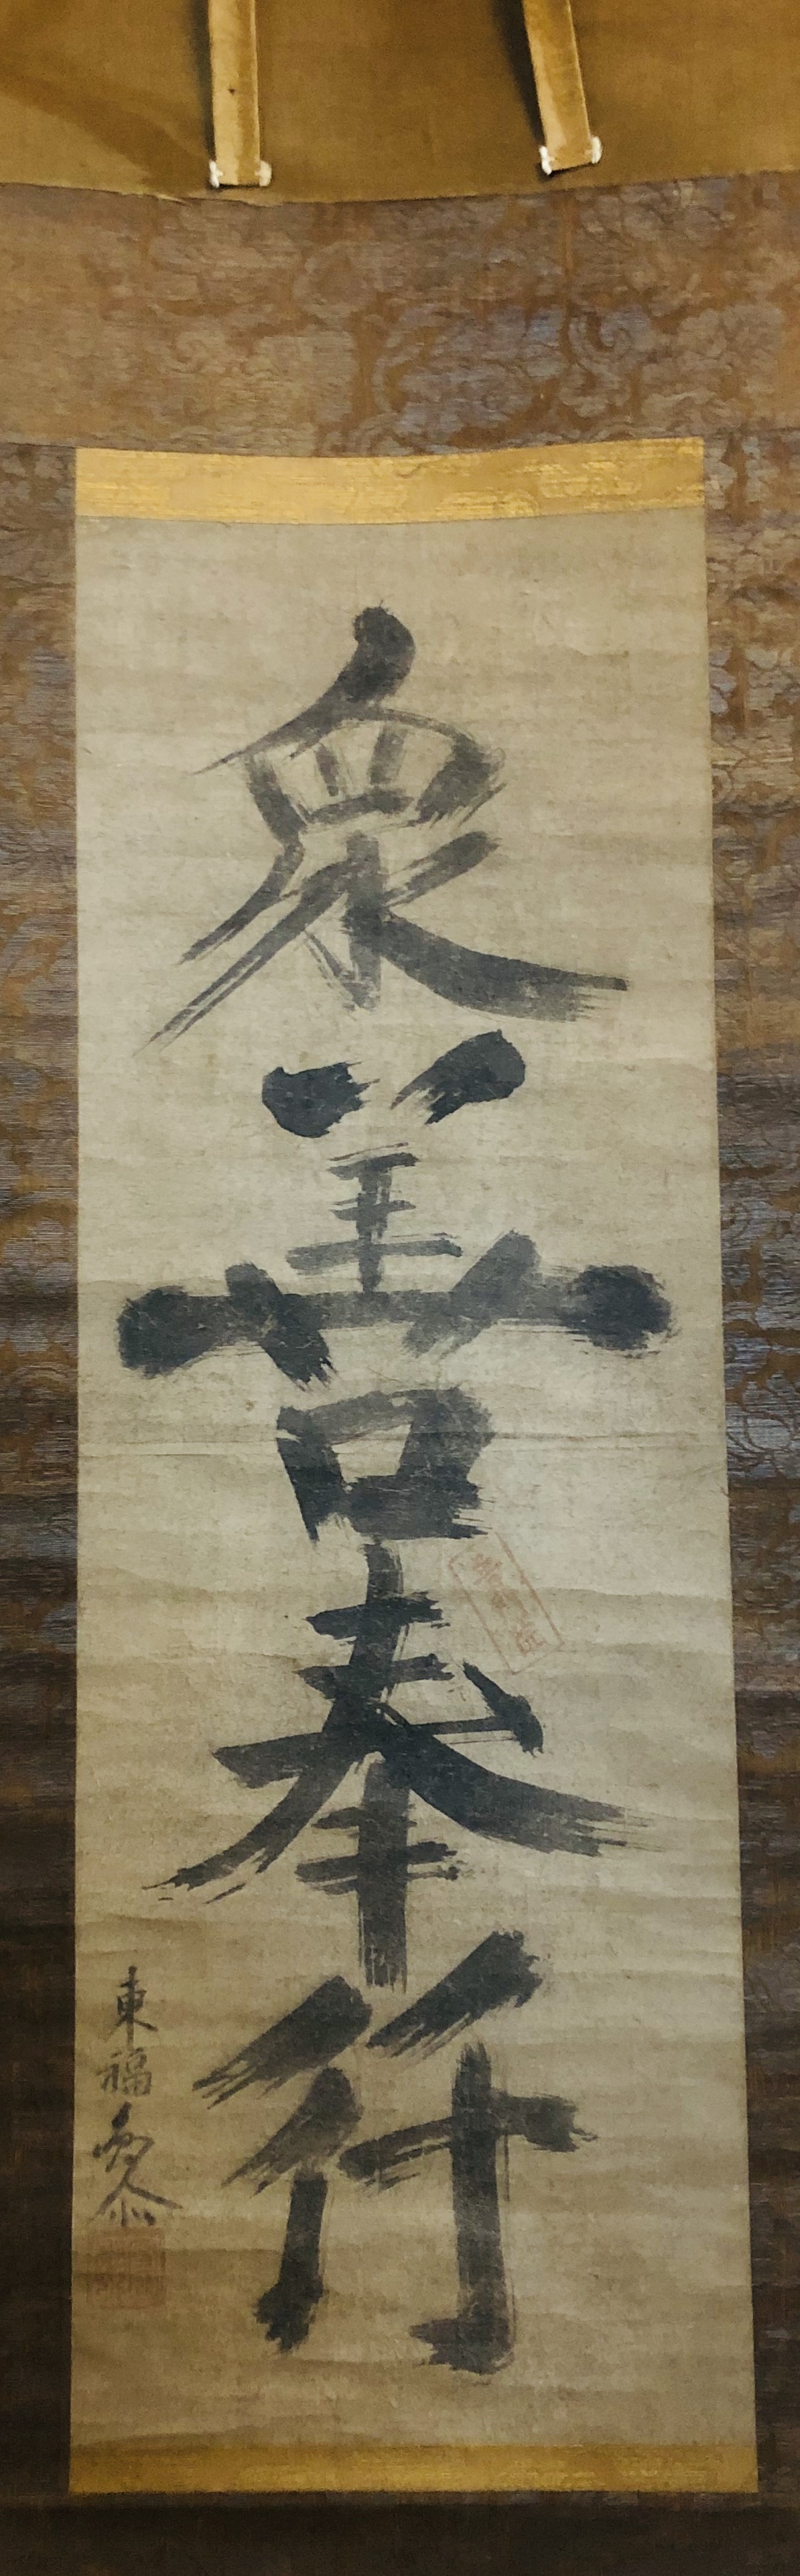 衆善奉行
東福